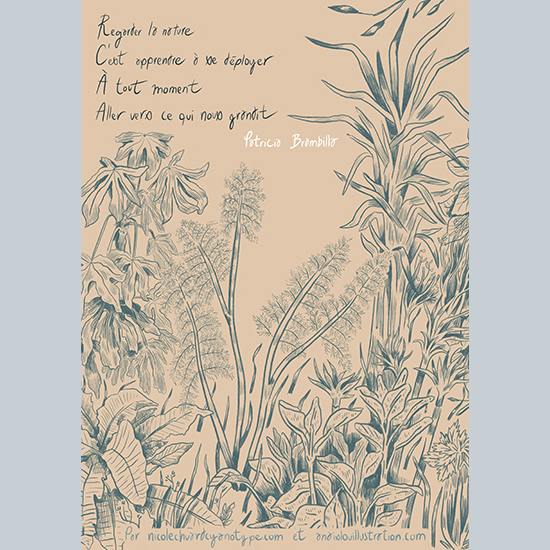 Regarder la nature
C'est apprendre à se déployer
À tout moment
Aller vers ce qui nous grandit
Patricia Brambilla
Par nicolechuardcyanotype.com et anaislouillustration.com